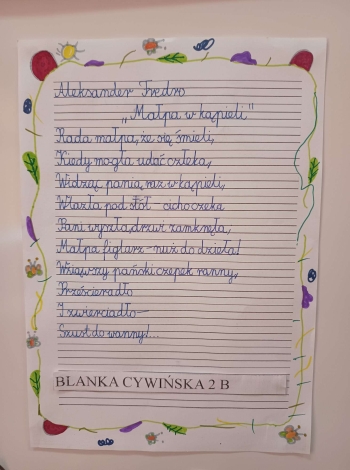 Aleksander Fredro
„Małpa w kąpieli"
Rada małpa, że się śmieli,
Kiedy mogła udać człeka,
Widząc panią raz w kąpieli,
Wlazła pod stół – cicho czeka
Pani wyszła, drzwi zamknęła,
Małpa figlarz – nuż do dzieła!
Wziąwszy pański czepek ranny,
Prześcieradło
I zwierciadło –
Szust do wanny!...
BLANKA CYWIŃSKA 2 B